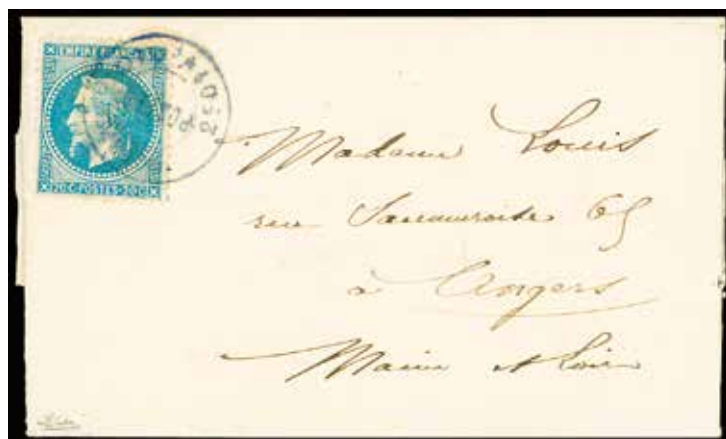 EMPIRE FRANÇAIS
20 C POSTES 20 C
Madame Louis
rue 65
à Angers
Maine et Loire